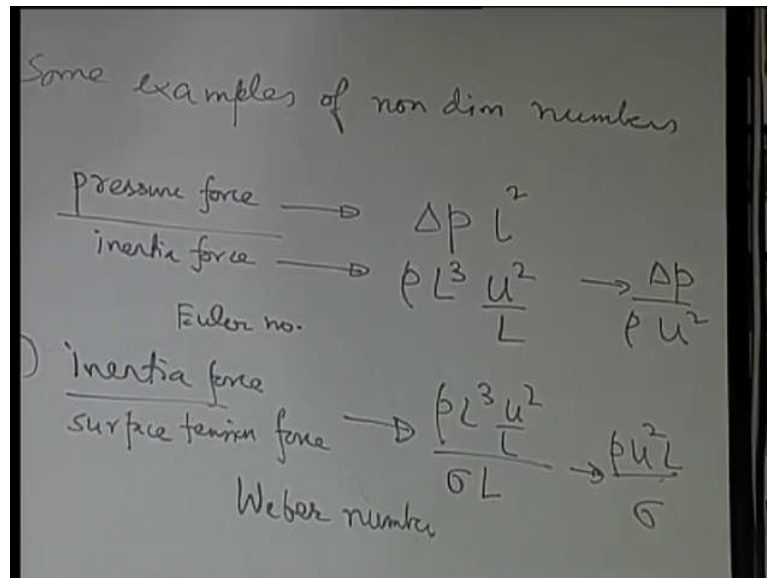 Some examples of non dim numbers
pressure force → Δp L²
inertia force → ρL³ u²/L → Δp/ρu²
Euler no.
) inertia force
surface tension force → ρL³ u²/L / σL → ρu²L/σ
Weber number